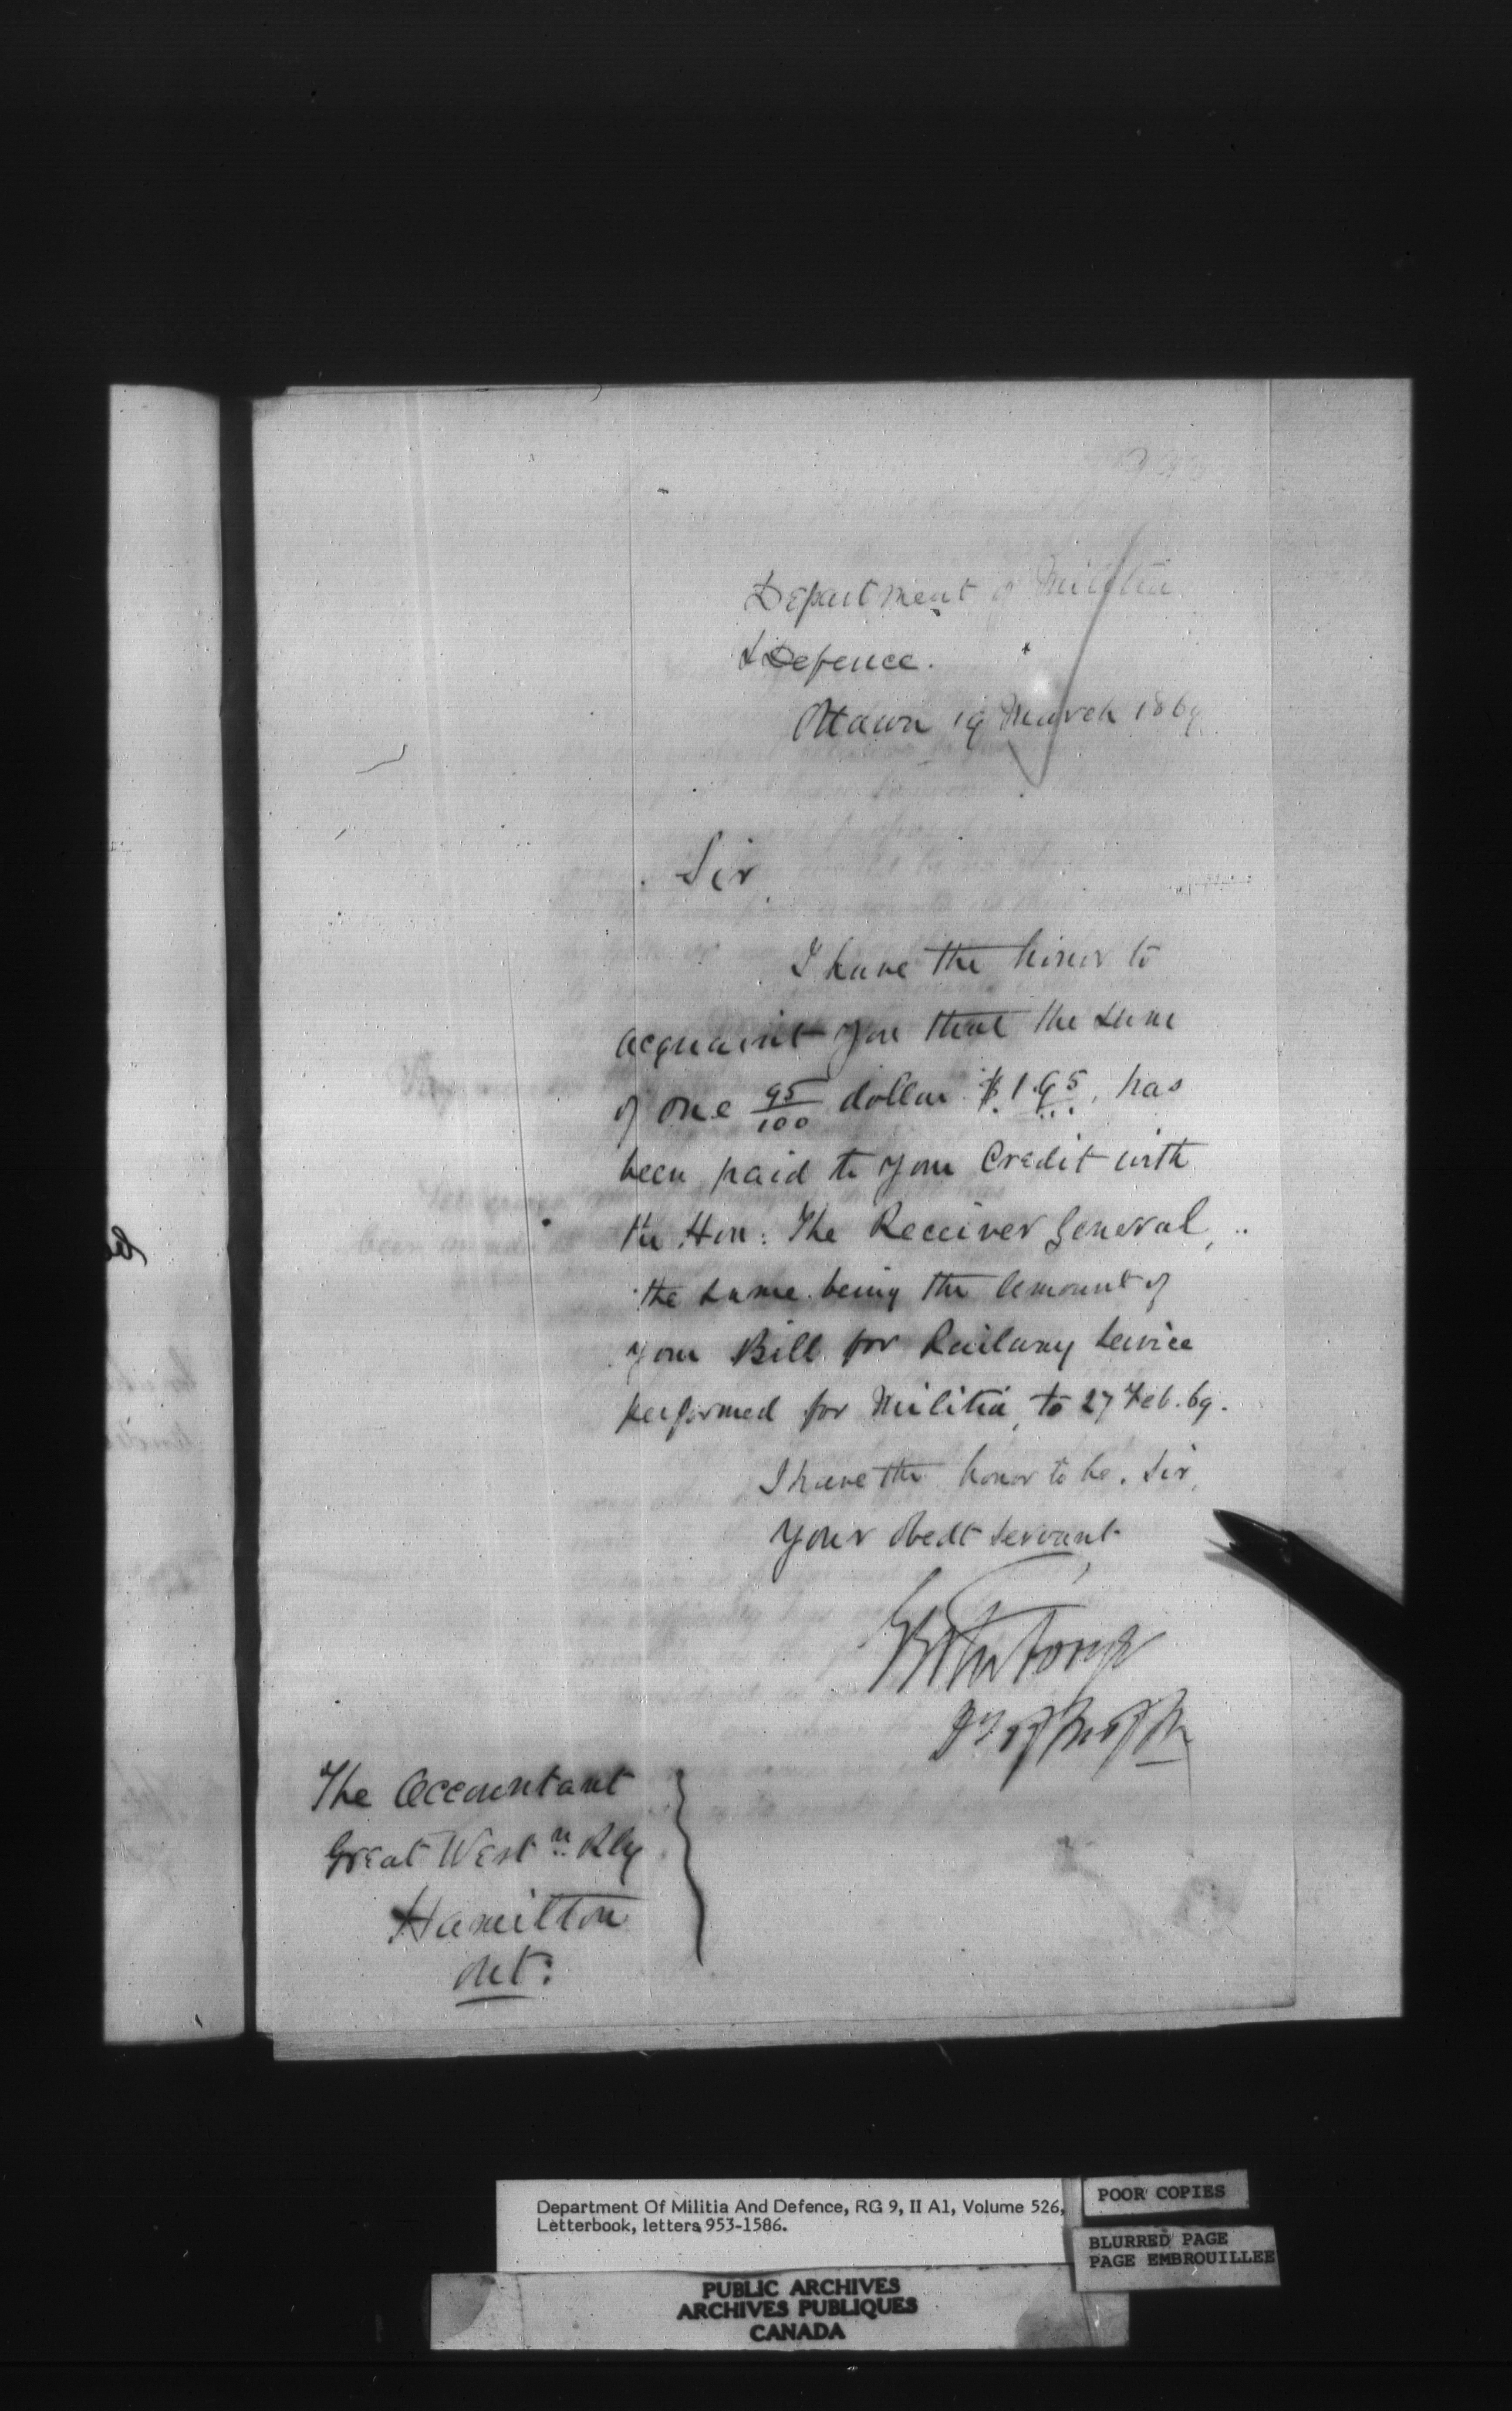 Department of Militia
& Defence.
Ottawa 19 March 1869
Sir
I have the honor to
acquaint you that the sum
of one 95/100 dollar $1.95. has
been paid to your Credit with
the Hon: The Receiver General,
the same being the Amount of
your Bill for Railway Service
performed for Militia, to 27 Feb. 69.
I have the honor to be. Sir,
Your Obedt Servant
The Accountant
Great Westn Rly
Hamilton
Ont:
Department Of Militia And Defence, RG 9, II A1, Volume 526,
Letterbook, letters 953-1586.
POOR COPIES
BLURRED PAGE
PAGE EMBROUILLEE
PUBLIC ARCHIVES
ARCHIVES PUBLIQUES
CANADA